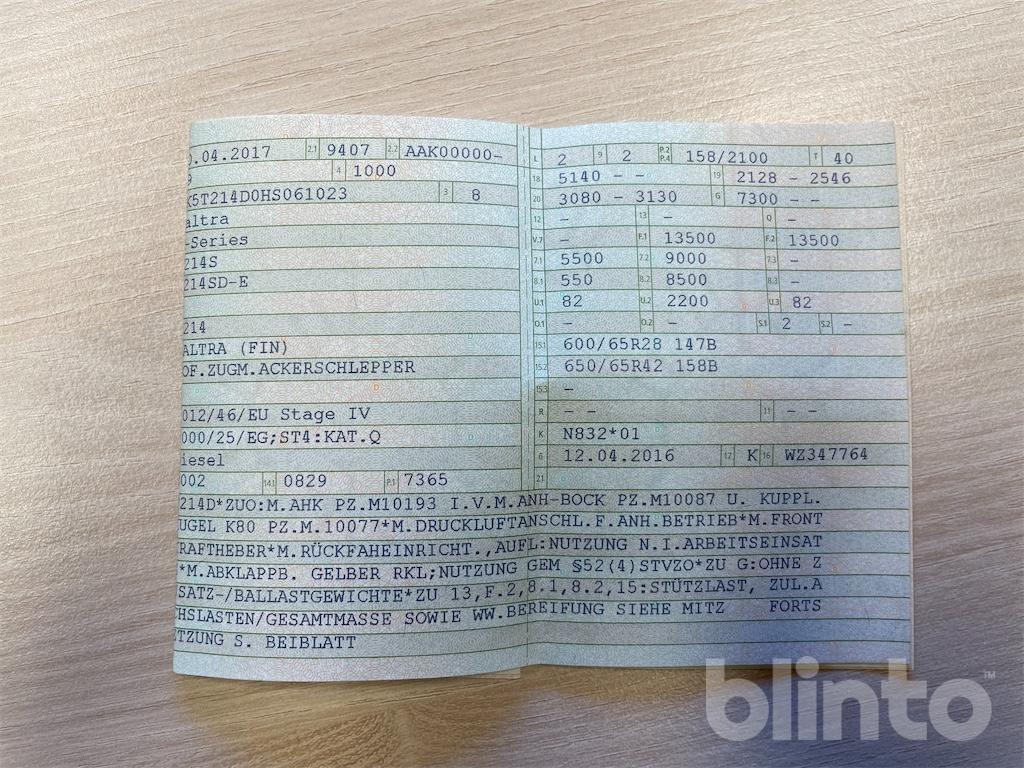 .04.2017 2.1 9407 2.2 AAK00000-
9 4 1000
K5T214D0HS061023 3 8
altra
-Series
214S
214SD-E
214
ALTRA (FIN)
OF.ZUGM.ACKERSCHLEPPER
012/46/EU Stage IV
000/25/EG;ST4:KAT.Q
iesel
002 14.1 0829 P.1 7365
L 2 9 2 P.2 P.4 158/2100 T 40
18 5140 - - 19 2128 - 2546
20 3080 - 3130 G 7300 - -
12 - 13 - Q -
V.7 - F.1 13500 F.2 13500
7.1 5500 7.2 9000 7.3 -
8.1 550 8.2 8500 8.3 -
U.1 82 U.2 2200 U.3 82
O.1 - O.2 - S.1 2 S.2 -
15.1 600/65R28 147B
15.2 650/65R42 158B
15.3 -
R - - 11 - -
K N832*01
6 12.04.2016 17 K 16 WZ347764
21
214D*ZUO:M.AHK PZ.M10193 I.V.M.ANH-BOCK PZ.M10087 U. KUPPL.
UGEL K80 PZ.M.10077*M.DRUCKLUFTANSCHL.F.ANH.BETRIEB*M.FRONT
RAFTHEBER*M.RÜCKFAHEINRICHT.,AUFL:NUTZUNG N.I.ARBEITSEINSAT
*M.ABKLAPPB. GELBER RKL;NUTZUNG GEM §52(4)STVZO*ZU G:OHNE Z
SATZ-/BALLASTGEWICHTE*ZU 13,F.2,8.1,8.2,15:STÜTZLAST, ZUL.A
HSLASTEN/GESAMTMASSE SOWIE WW.BEREIFUNG SIEHE MITZ FORTS
TZUNG S. BEIBLATT
blinto™